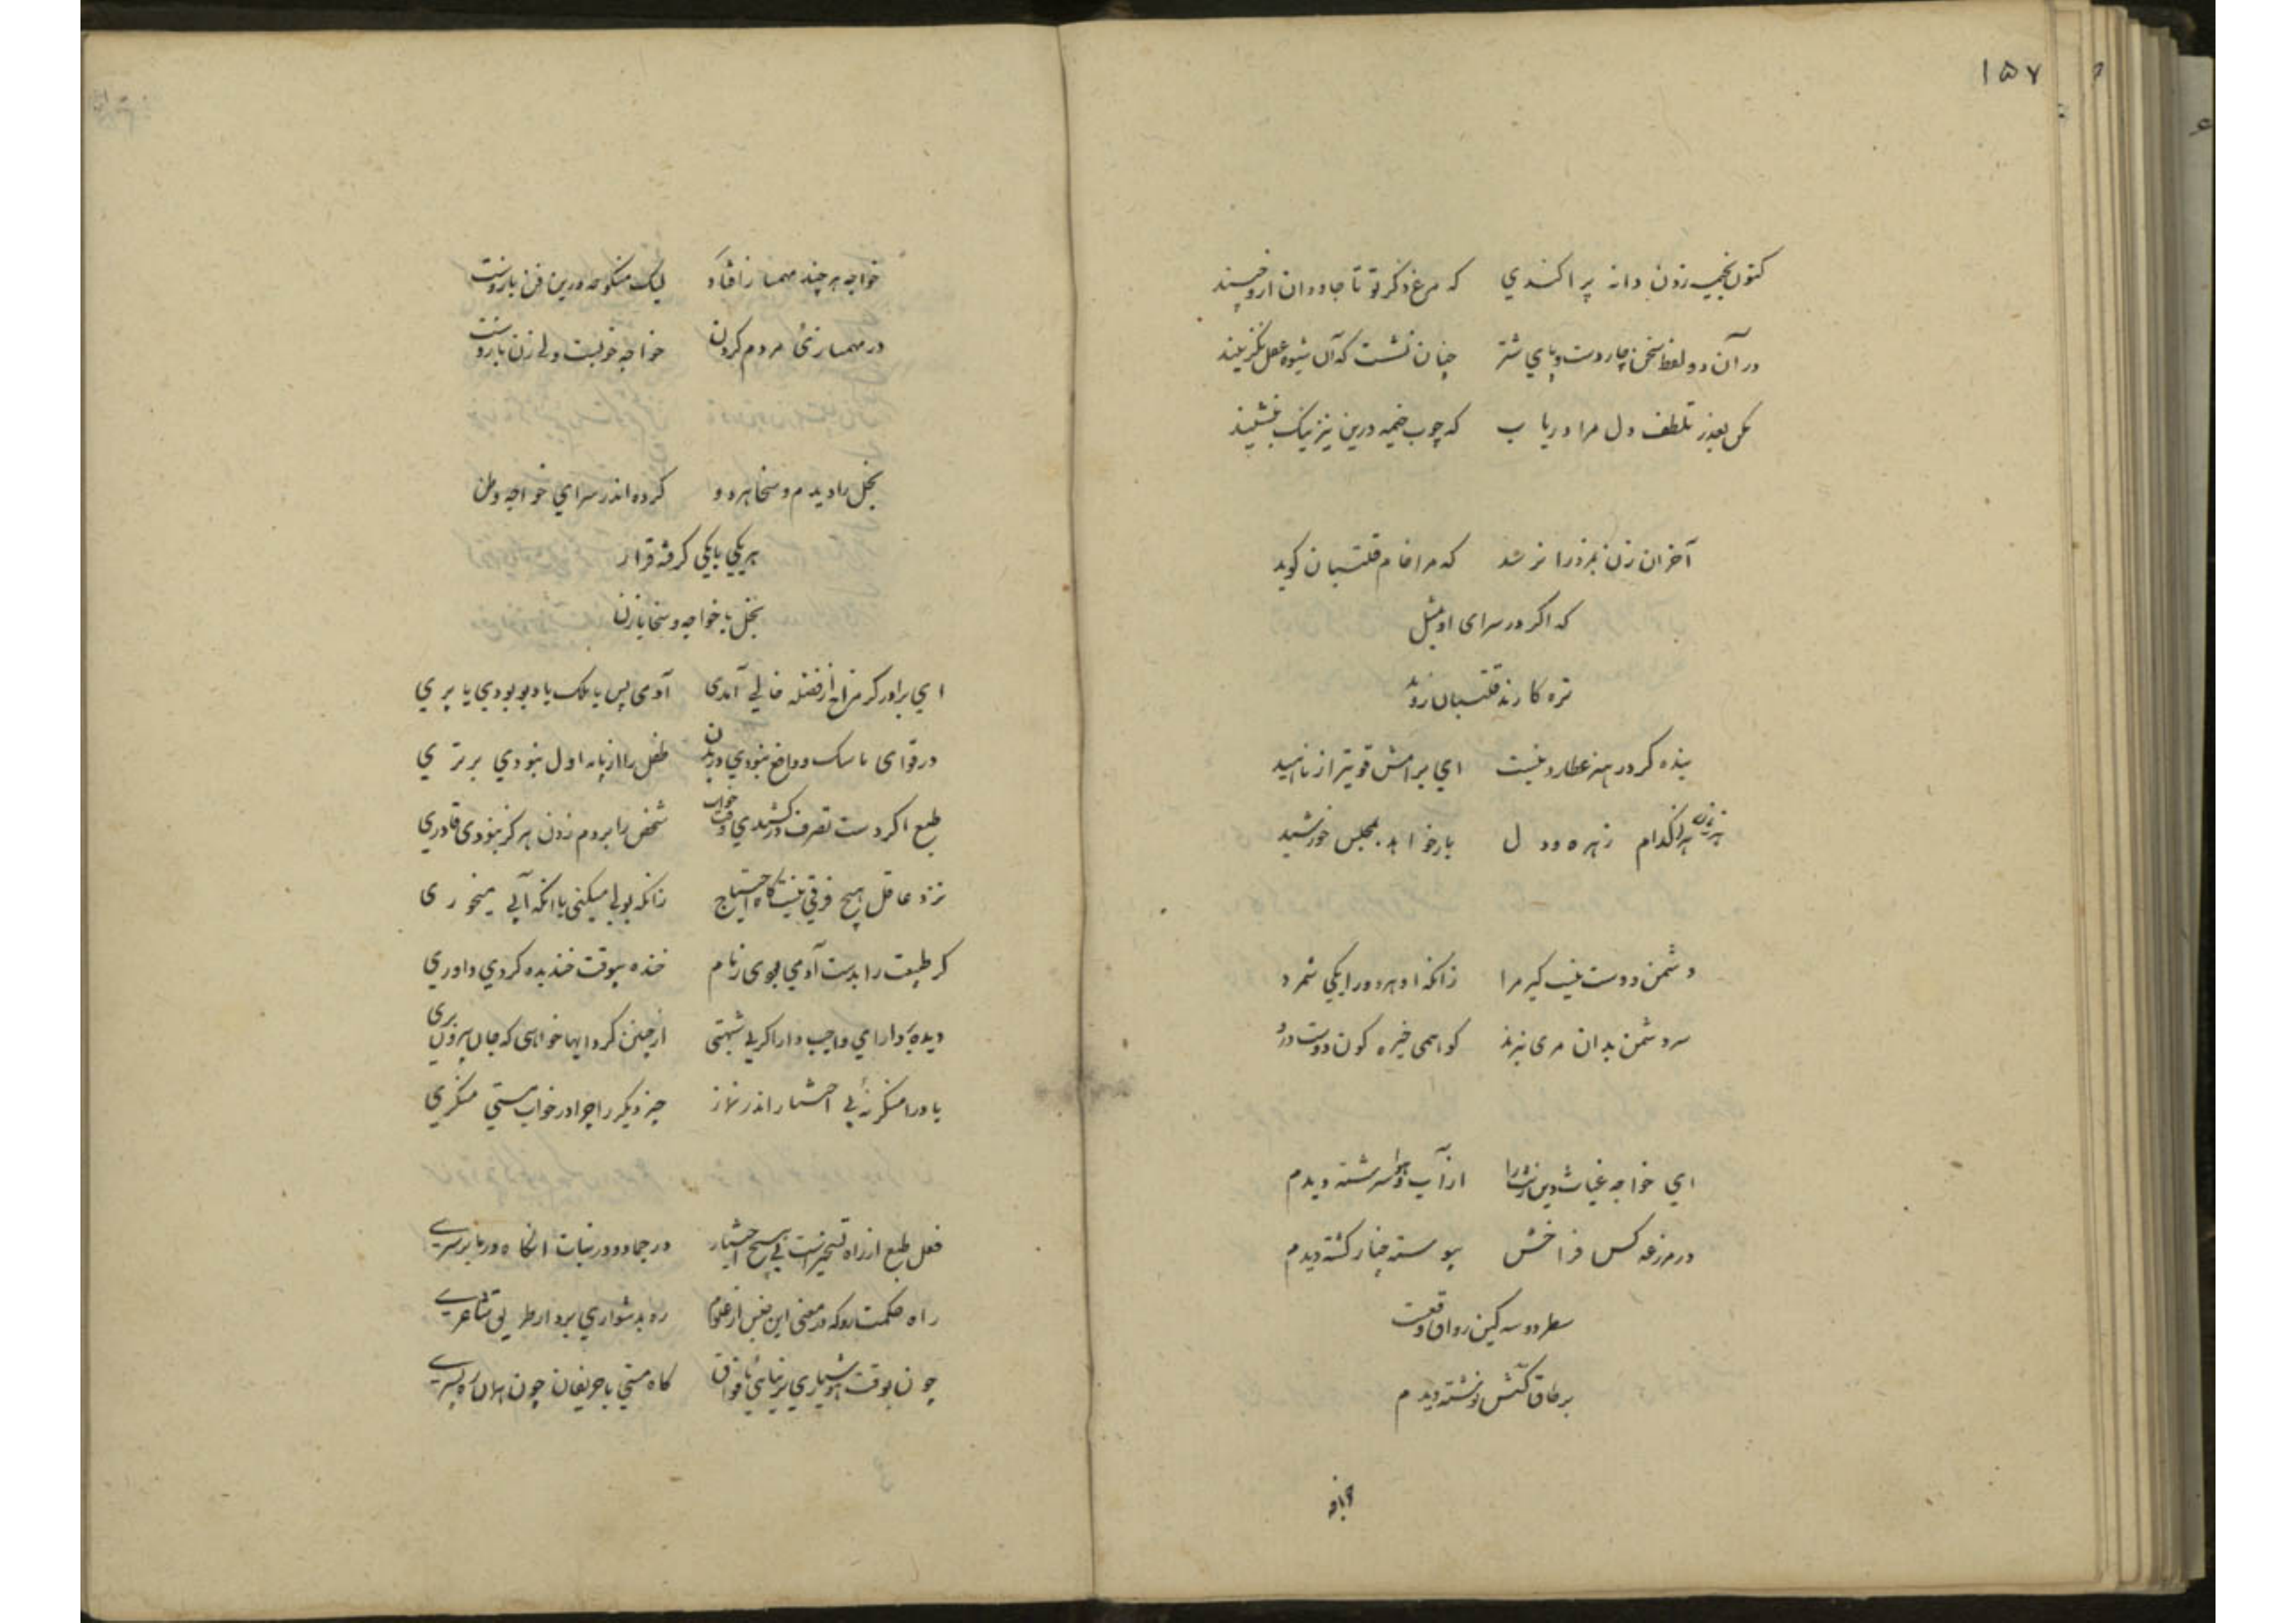 ۱۵۷
کنون بخیمه زدن دانه پراکندی که مرغ ذکر تو تا جاودان ازو چیند
در آن دو لفظ سخن چار دست و پای شتر چنان نشست که آن شیوه عقل نگزیند
مکن بعذر تلطف دل مرا دریاب که چوب خیمه درین نیز نیک بنشیند
آخر ان زن بمزد را نرشد که مرا خام قلتبان کوید
که اگر در سرای او بمثل
تره کارند قلتبان روید
بنده کر در هنر عطارد نیست ای برامش قویتر از ناهید
هر کدام زهره و دل بار خواهد بمجلس خورشید
دشمن و دوست نیست کیر مرا زانکه او هر دو را یکی شمرد
سر دشمن بدان مری نبرد کو همی خیره کون دوست درد
ای خواجه غیاث دین زنت را از آب وفا سرشته دیدم
در مزرعه کس فراخش پیوسته خیار کشته دیدم
سطر دو سه کین رواق وقفست
بر طاق کسش نوشته دیدم
خواجه
خواجه هر چند مهمان زافتاد لیک منکوحه درین فن باروست
در مهمان زنی مردم کردن خواجه خوبست ولی زن باروست
بخل را دیدم و سخا هر دو کرده اندر سرای خواجه وطن
هر یکی با یکی گرفته قرار
بخل با خواجه و سخا با زن
ای برادر کر مزاج از فضله خالی آمدی آدمی پس یا ملک یا دیو بودی یا پری
در قوای ماسک و دافع نبودی در بدن طفل را از پایه اول نبودی برتری
طبع اگر دست تصرف در کشیدی وقت خواب شخص را بر دم زدن هرگز نبودی قادری
نزد عاقل هیچ فرقی نیست گاه احتیاج زانکه بولی میکنی یا انکه آبی میخوری
کر طبیعت را بدست آدمی بودی زمام خنده بیوقت خندیده کردی داوری
دیده دارای واجب دار اگر بی شبهتی از چنین کردایها خواهی که جان بیرون بری
باد را منکر نه بی اختیار اندر نماز چیز دیگر را چرا در خواب مستی منکری
فعل طبع از راه تسخیرست بی هیچ اختیار در جماد و در نبات انگاه در ما بر سری
راه حکمت رو که در معنی این جنس از علوم ره بدشواری برد از طریق شاعری
چون بوقت هوشیاری بر نیایی با فواق گاه مستی با حریفان چون همان ره بسپری